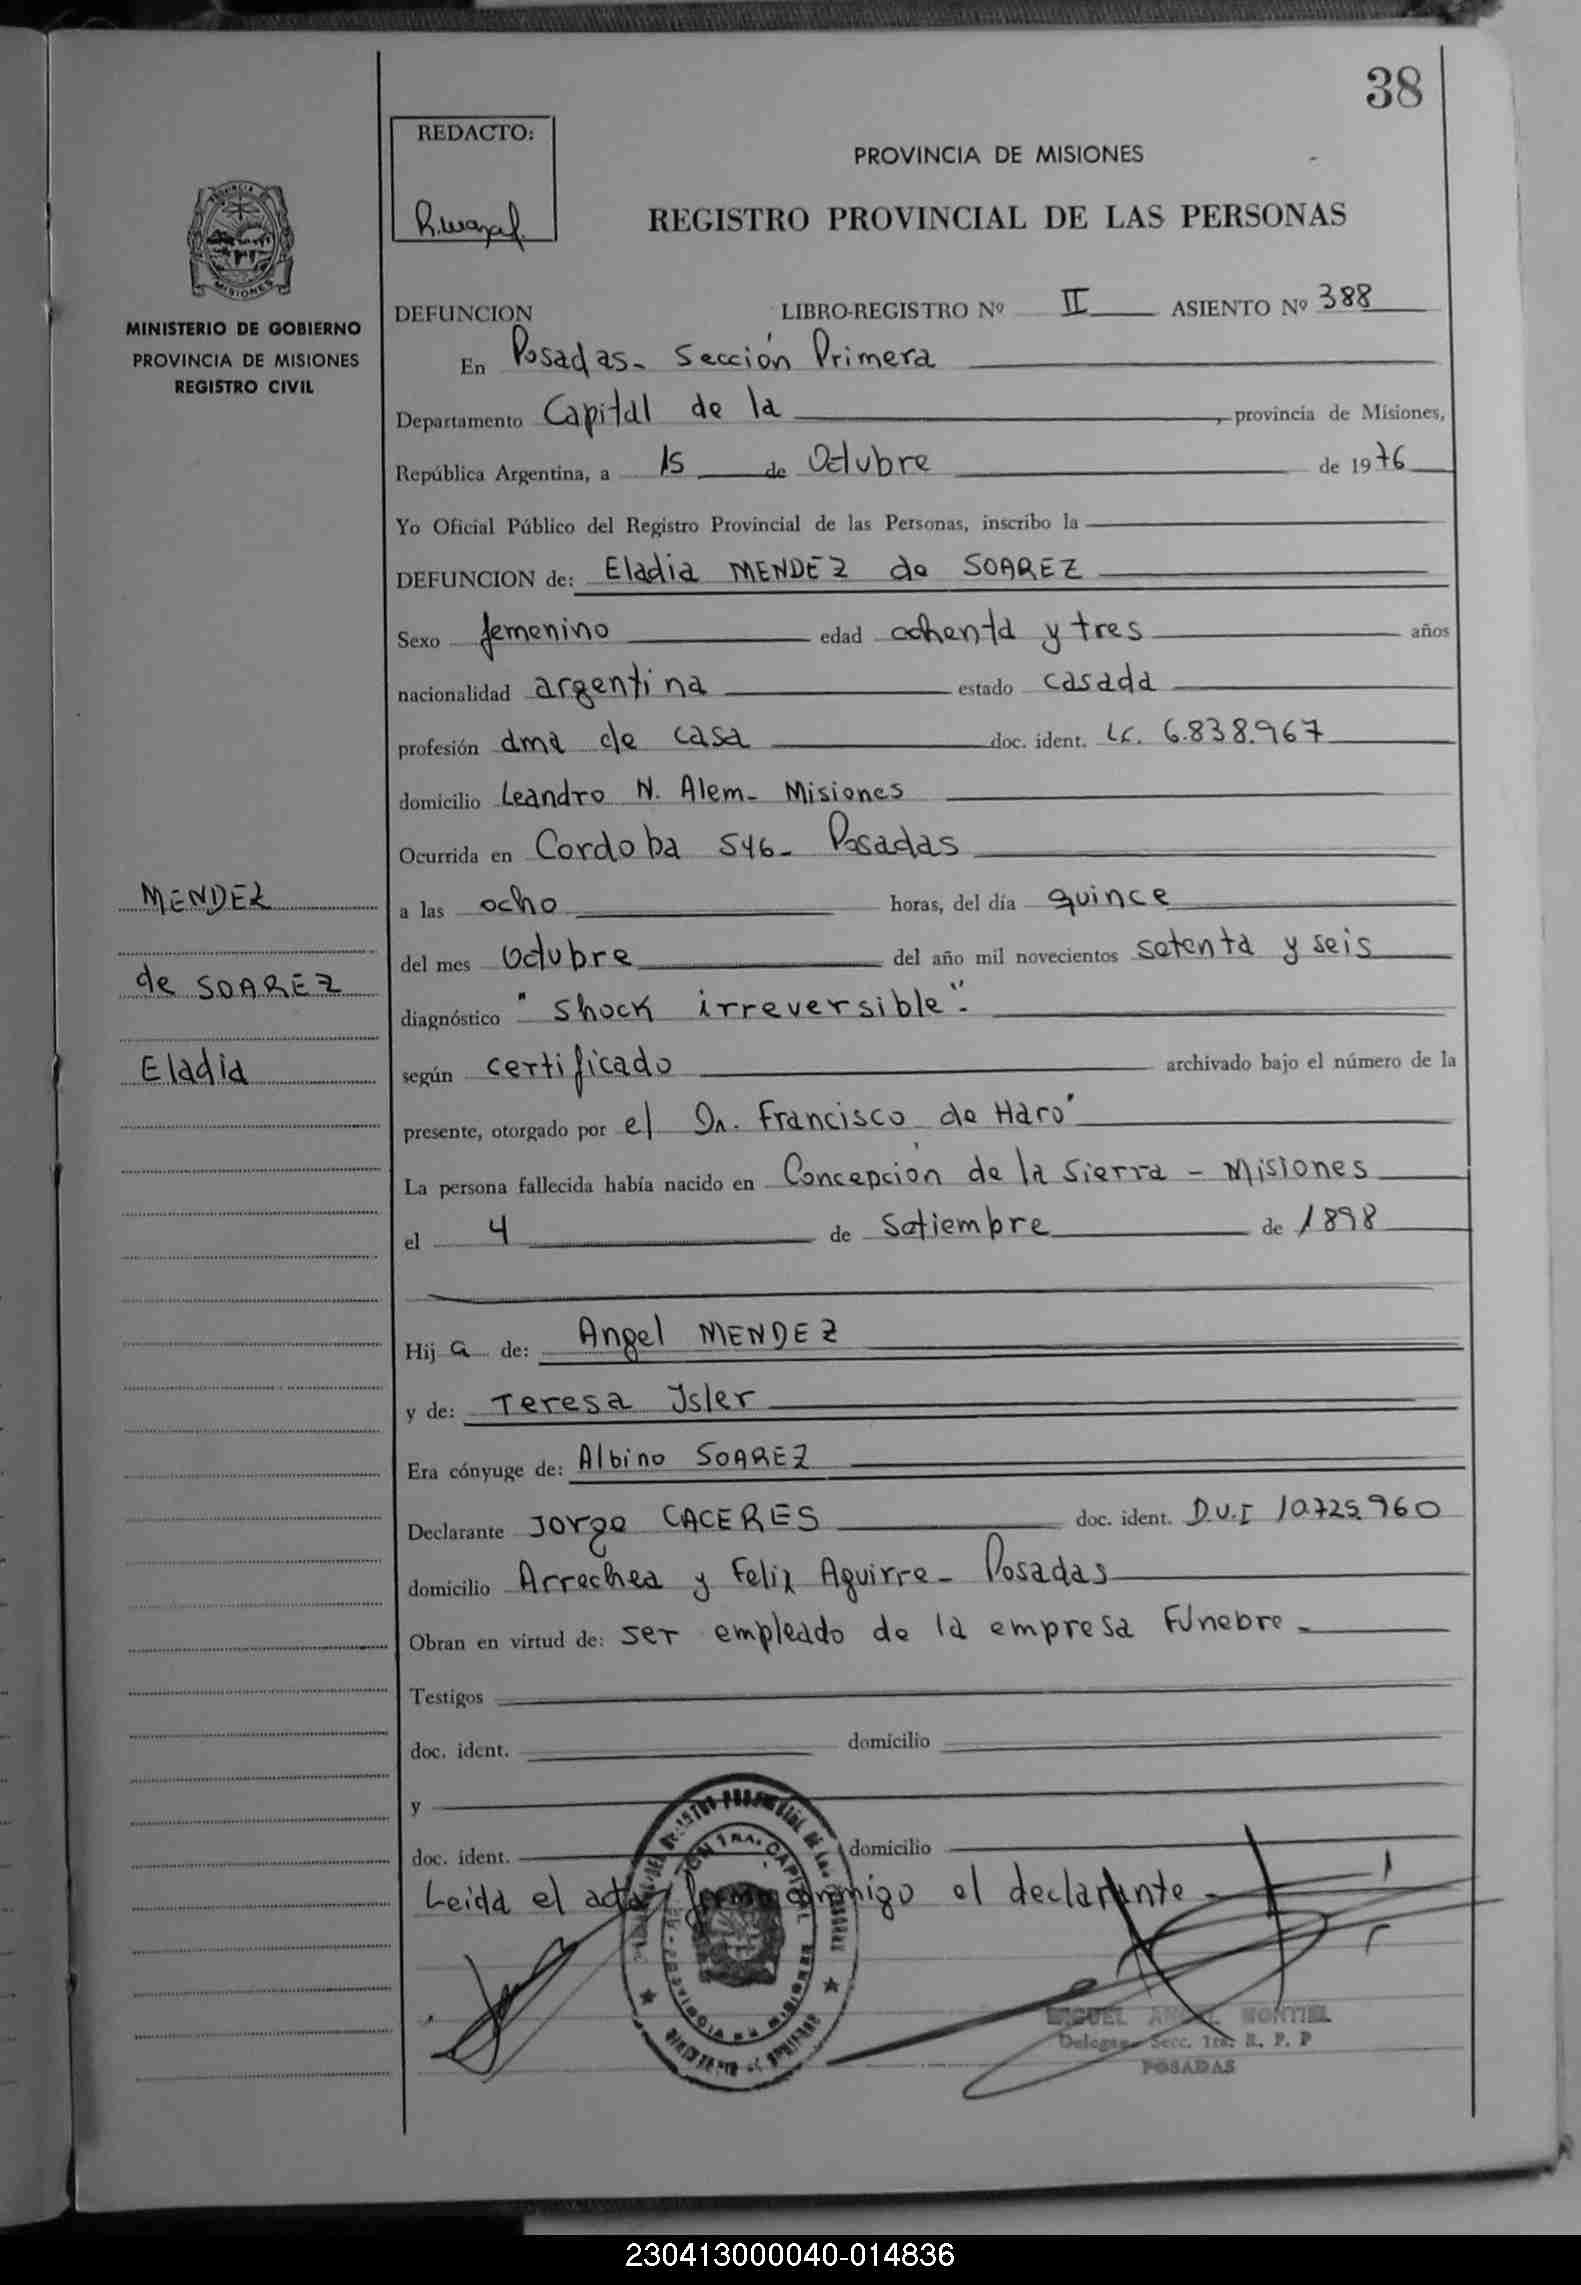 38
REDACTO:
PROVINCIA DE MISIONES
REGISTRO PROVINCIAL DE LAS PERSONAS
MISIONES
MINISTERIO DE GOBIERNO
PROVINCIA DE MISIONES
REGISTRO CIVIL
DEFUNCION LIBRO-REGISTRO Nº II ASIENTO Nº 388
En Posadas - Sección Primera
Departamento Capital de la , provincia de Misiones,
República Argentina, a 15 de Octubre de 1976
Yo Oficial Público del Registro Provincial de las Personas, inscribo la
DEFUNCION de: Eladia MENDEZ de SOAREZ
Sexo femenino edad ochenta y tres años
nacionalidad argentina estado casada
profesión ama de casa doc. ident. LC. 6.838.967
domicilio Leandro N. Alem - Misiones
Ocurrida en Cordoba 546 - Posadas
MENDEZ
de SOAREZ
Eladia
a las ocho horas, del día quince
del mes Octubre del año mil novecientos setenta y seis
diagnóstico "Shock irreversible".
según certificado archivado bajo el número de la
presente, otorgado por el Dr. Francisco de Haro
La persona fallecida había nacido en Concepción de la Sierra - Misiones
el 4 de Setiembre de 1898
Hij a de: Angel MENDEZ
y de: Teresa Isler
Era cónyuge de: Albino SOAREZ
Declarante Jorge CACERES doc. ident. D.U.I 10.725.960
domicilio Arrechea y Feliz Aguirre - Posadas
Obran en virtud de: ser empleado de la empresa Funebre -
Testigos
doc. ident. domicilio
y
doc. ident. domicilio
Leida el acta firma conmigo el declarante -
MIGUEL ANGEL MONTIEL
Secc. 1ra. R. P. P
POSADAS
230413000040-014836